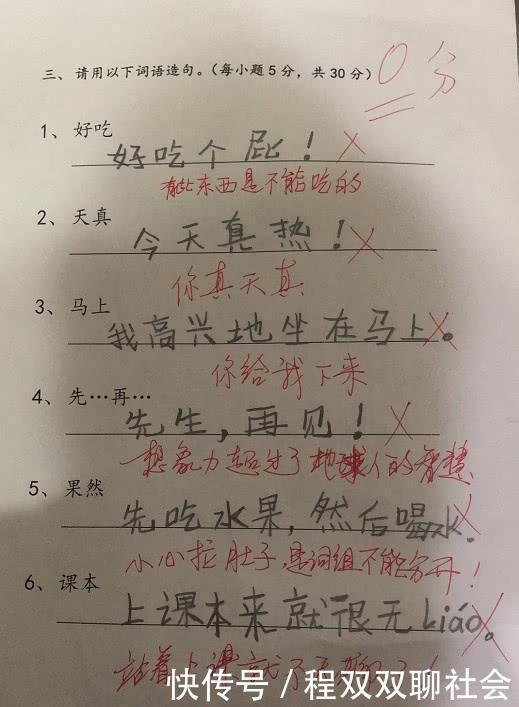 三、请用以下词语造句。(每小题5分,共30分)
0分
1、好吃
好吃个屁!
有些东西是不能吃的
2、天真
今天真热!
你真天真
3、马上
我高兴地坐在马上。
你给我下来
4、先…再…
先生,再见!
想象力超过了地球人的智慧
5、果然
先吃水果,然后喝水.
小心拉肚子,是词组不能分开!
6、课本
上课本来就很无liáo。
站着上课就不无聊了!
快传号/程双双聊社会